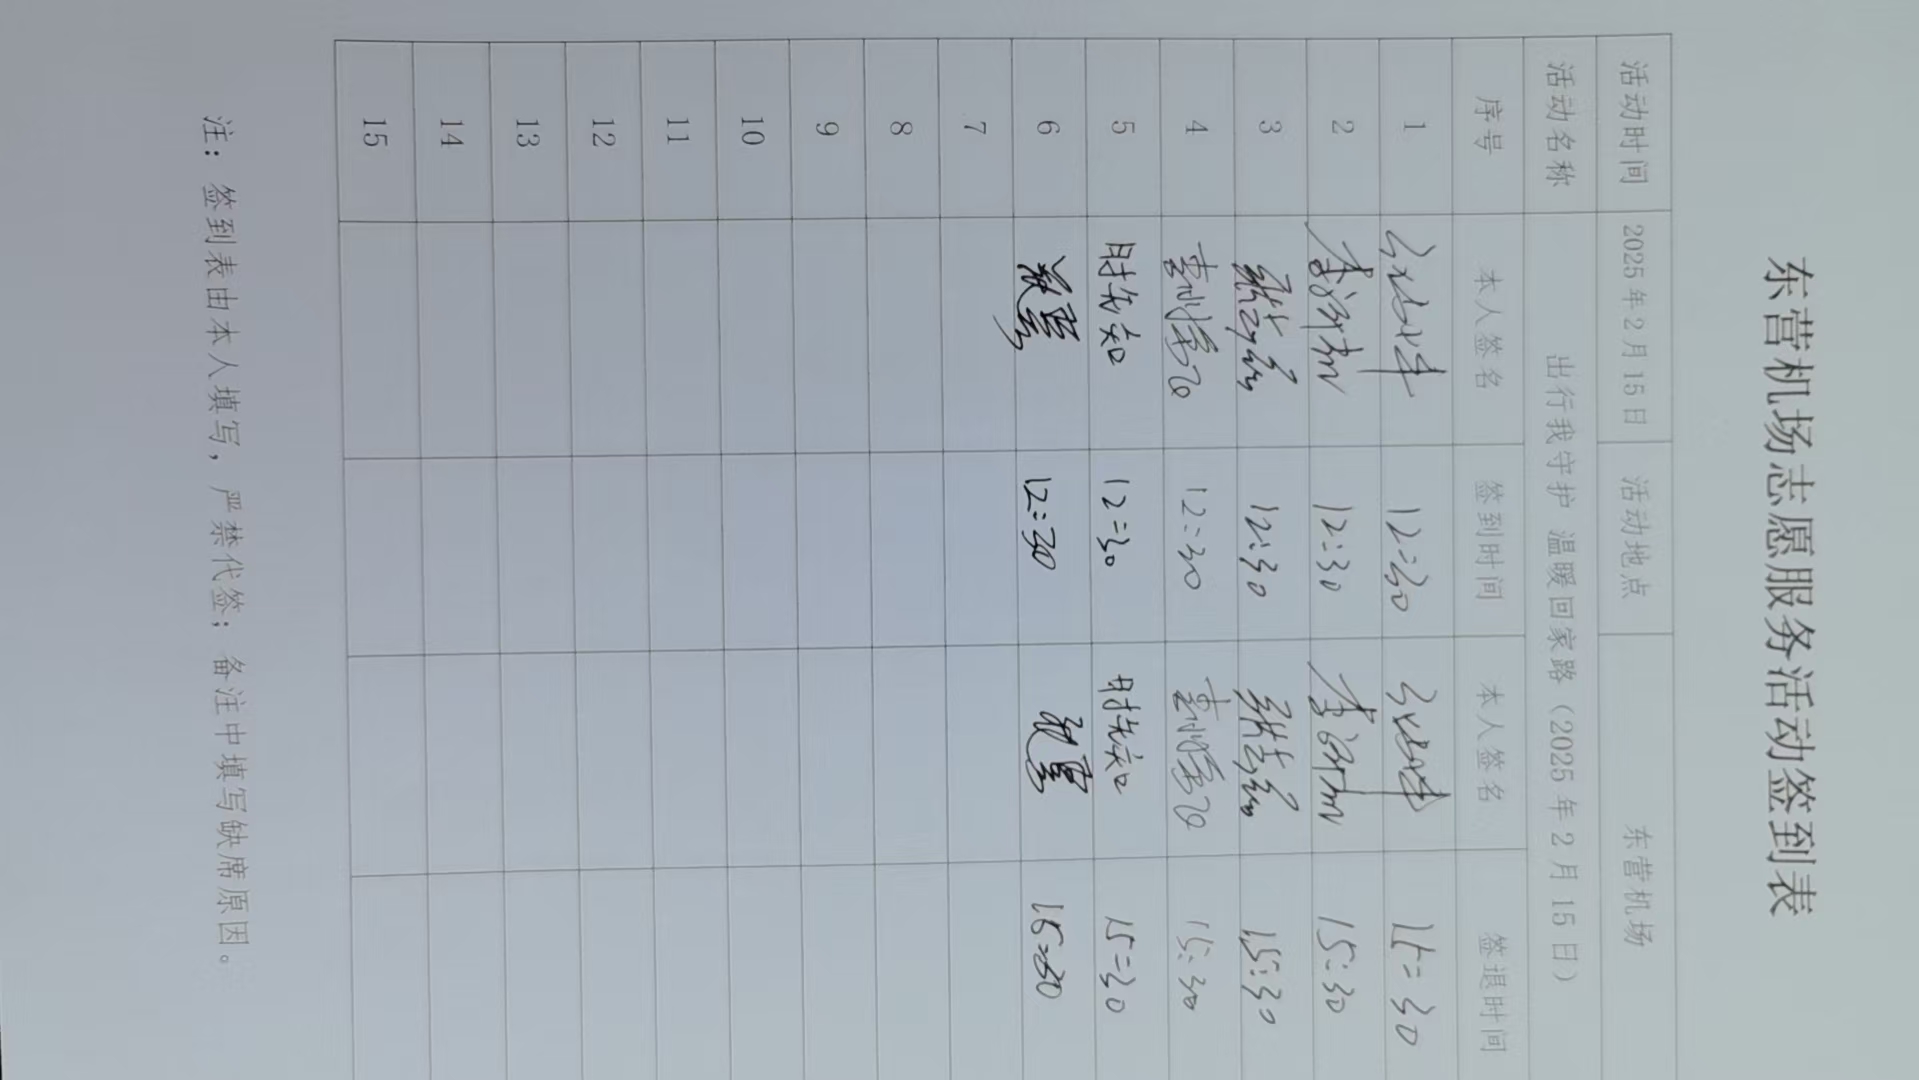 东营机场志愿服务活动签到表
活动时间 2025年2月15日 活动地点 东营机场
活动名称 出行我守护 温暖回家路（2025年2月15日）
序号 本人签名 签到时间 本人签名 签退时间
1 12:30 15:30
2 12:30 15:30
3 12:30 15:30
4 12:30 15:30
5 时先知 12:30 时先知 15:30
6 12:30 15:30
7
8
9
10
11
12
13
14
15
注：签到表由本人填写，严禁代签；备注中填写缺席原因。